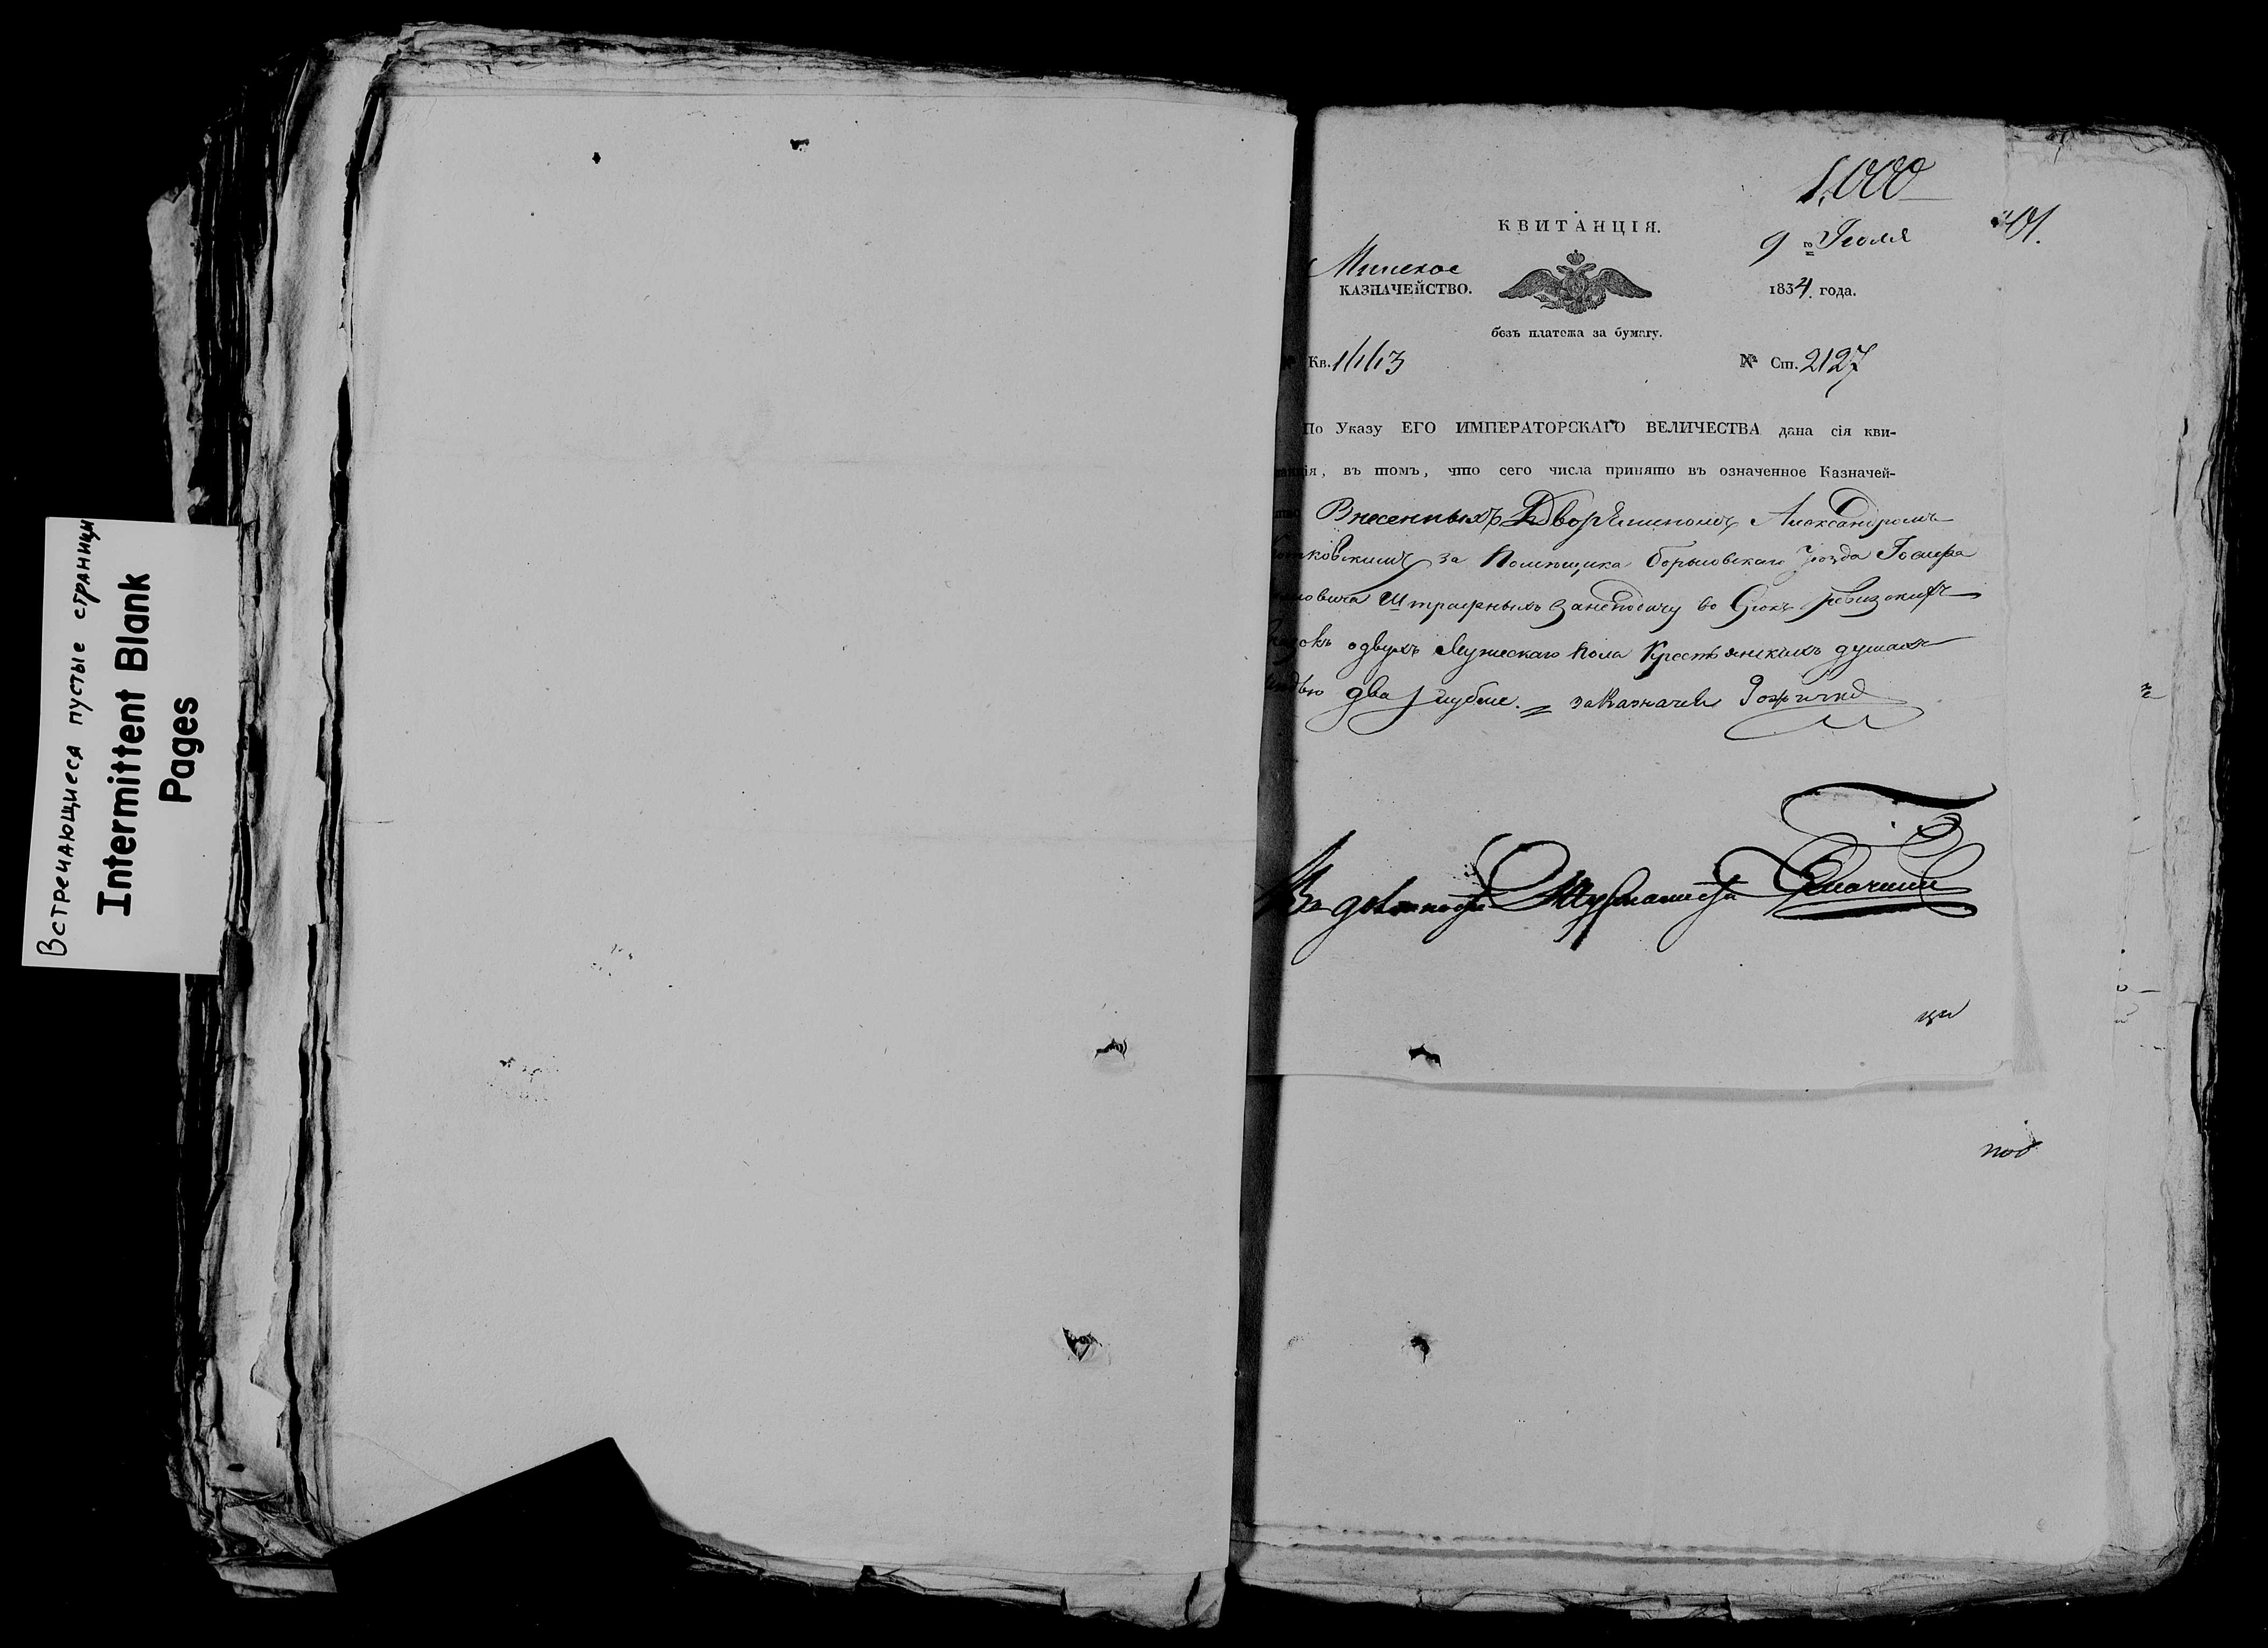 Встречающиеся пустые страницы
Intermittent Blank
Pages
1,000
КВИТАНЦІЯ.
9 го Іюля
Минское
КАЗНАЧЕЙСТВО.
1834 года.
безъ платежа за бумагу.
Кв. 11113
№ Ст. 2127
По Указу ЕГО ИМПЕРАТОРСКАГО ВЕЛИЧЕСТВА дана сія кви-
танція, въ томъ, что сего числа принято въ означенное Казначей-
Внесенныхъ Дворяниномъ Александромъ
за Помещика Борисовскаго уезда
Штрафныхъ за неподачу во Срокъ ревизскихъ
о двухъ Мужескаго пола Крестьянскихъ душахъ
два рубли. За Казначея
Въ должности
под